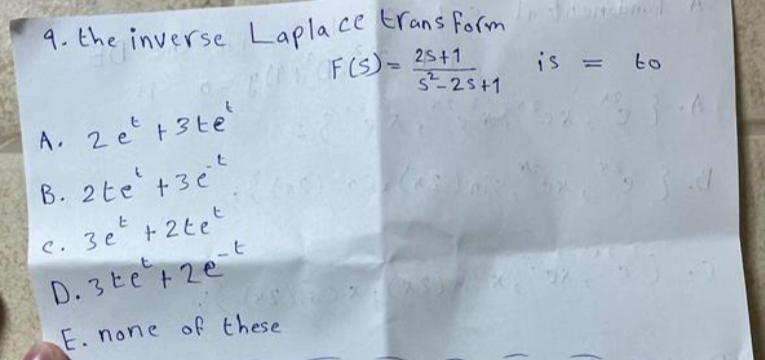 9. the inverse Laplace transform
F(S) = 2S+1 / S²-2S+1 is = to
A. 2e^t + 3te^t
B. 2te^t + 3e^-t
C. 3e^t + 2te^t
D. 3te^t + 2e^-t
E. none of these